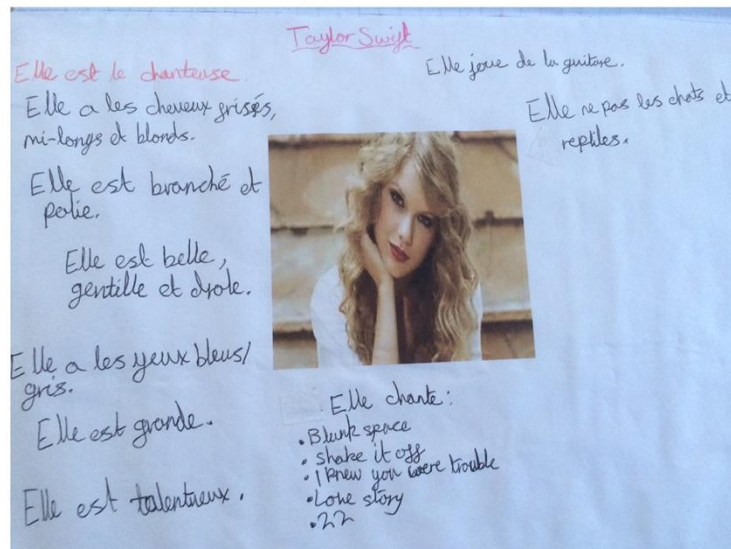 Taylor Swift
Elle est le chanteuse.
Elle a les cheveux frisés,
mi-longs et blonds.
Elle est branché et
polie.
Elle est belle,
gentille et drole.
Elle a les yeux bleus/
gris.
Elle est grande.
Elle est talentueux.
Elle joue de la guitare.
Elle ne pas les chats et
reptiles.
Elle chante:
• Blank space
• Shake it off
• I knew you were trouble
• Love story
• 22